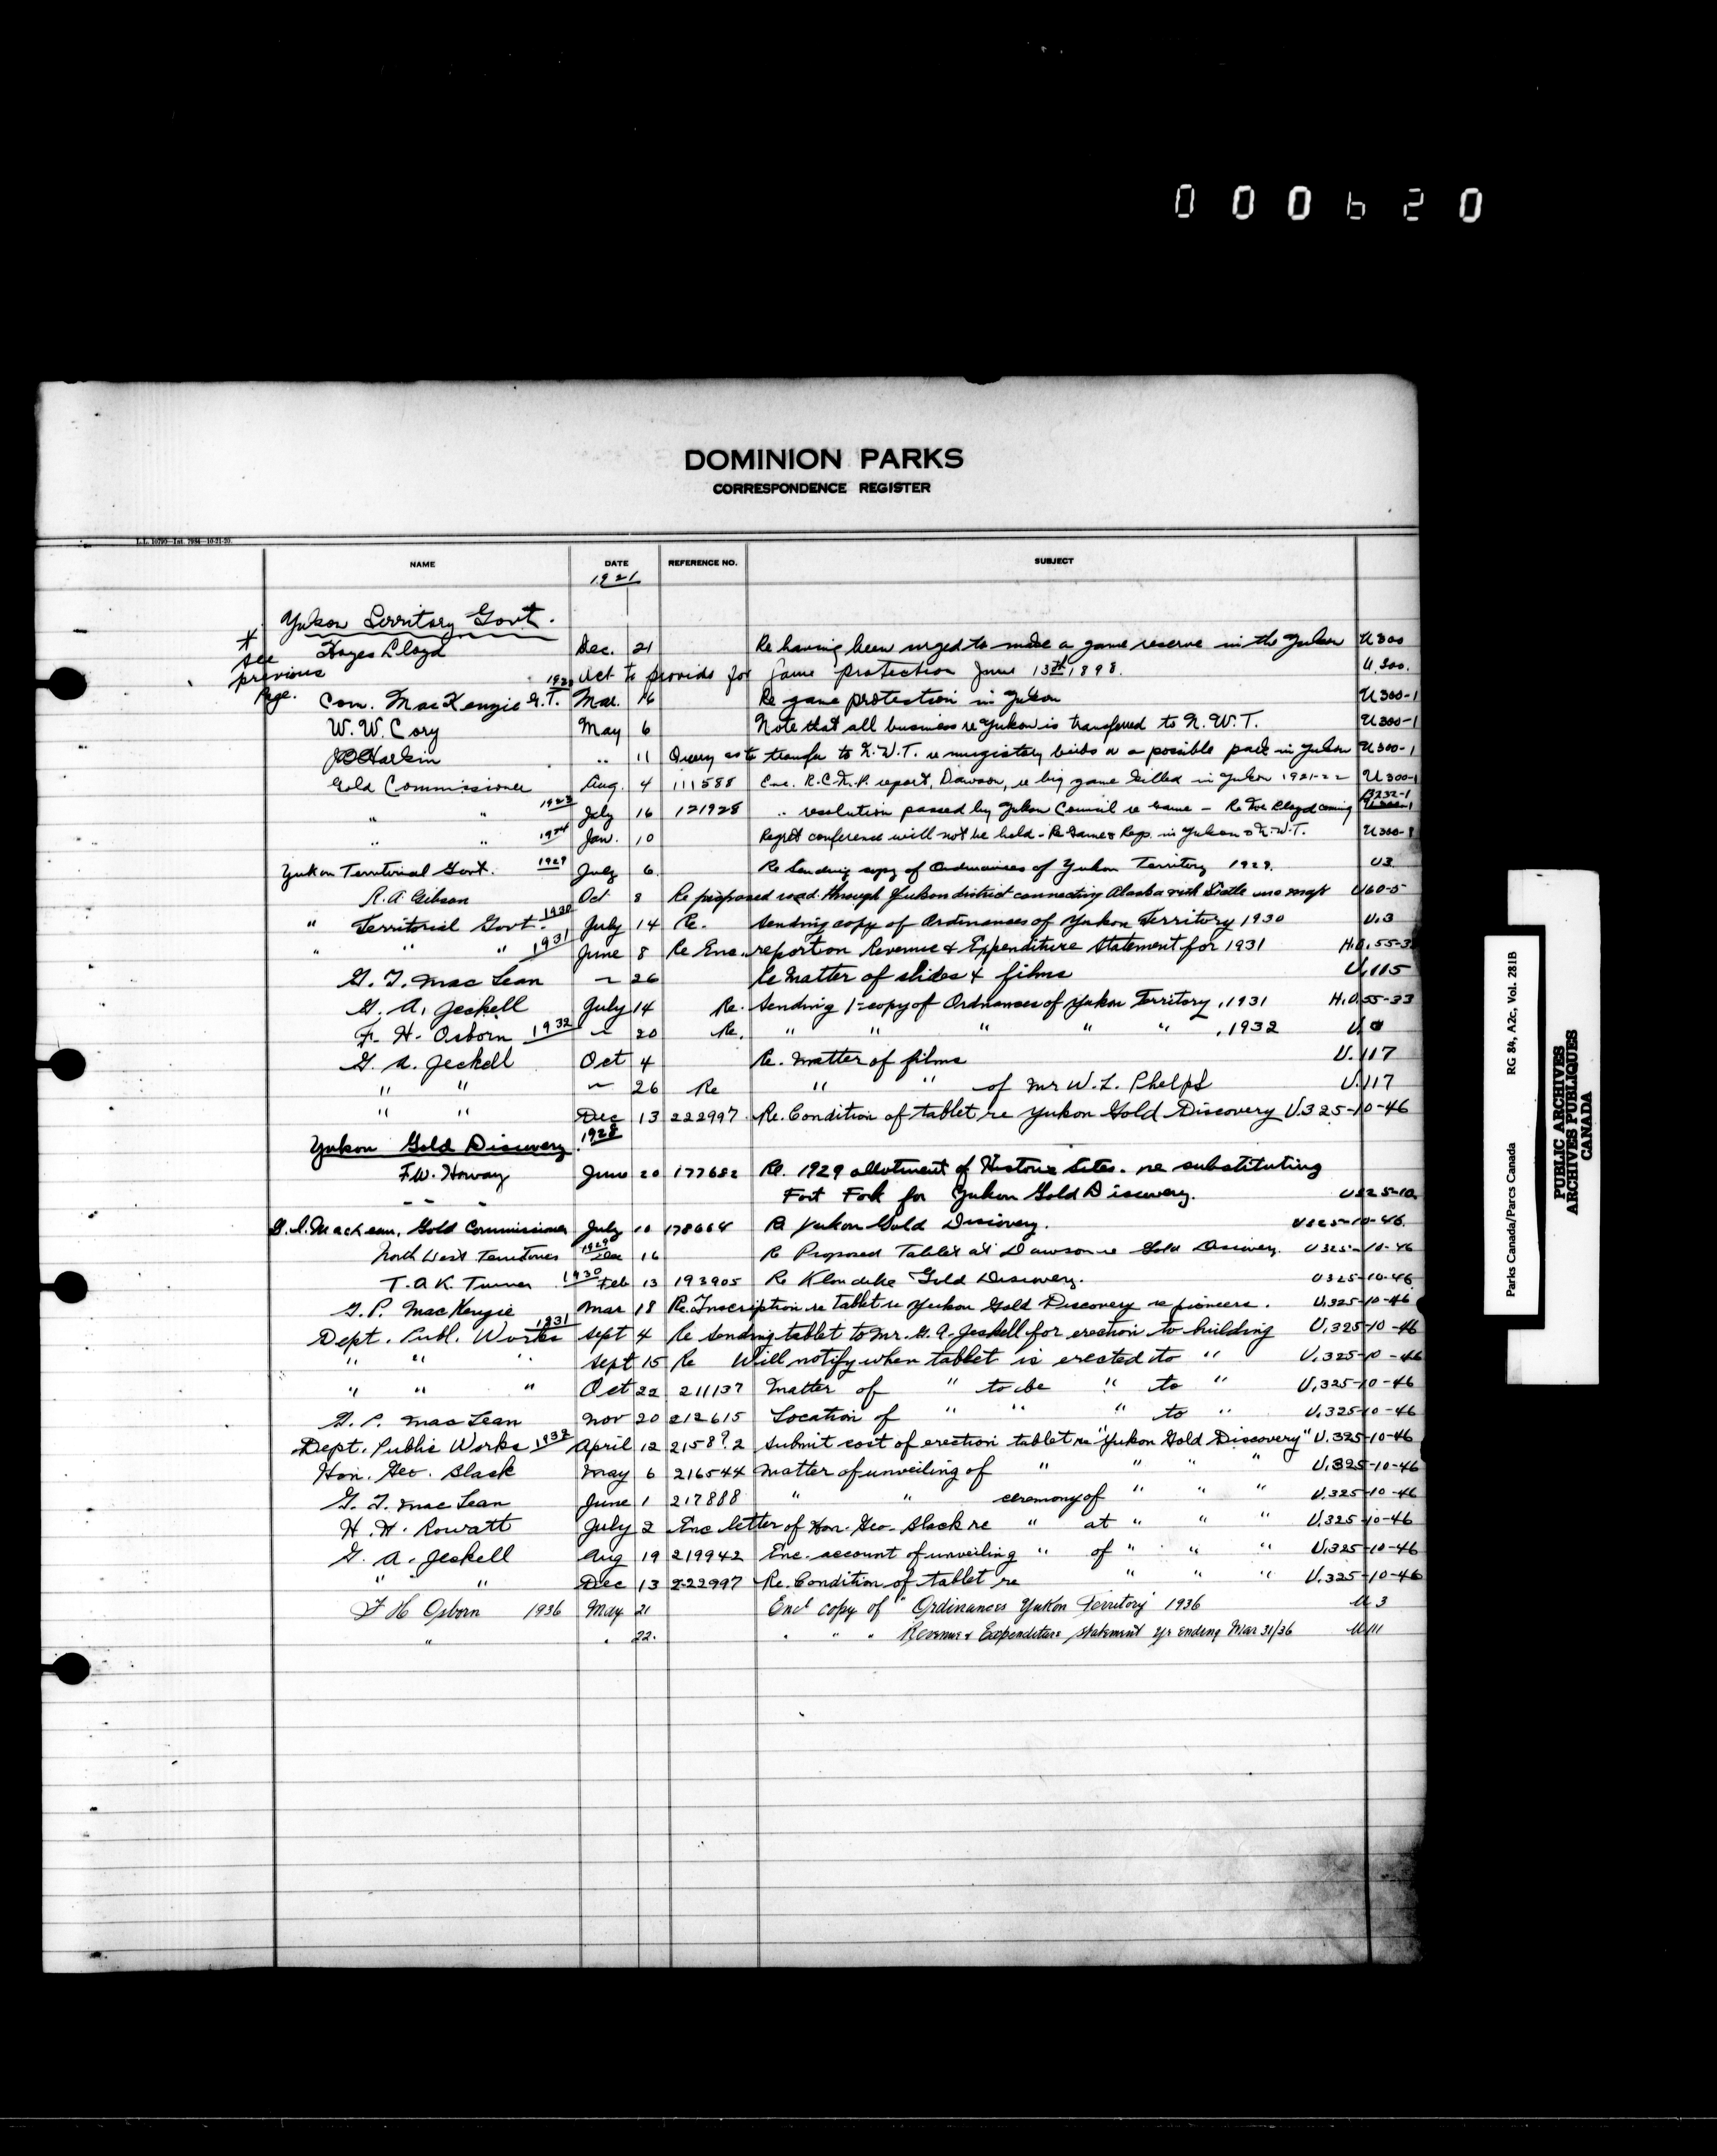 000620
DOMINION PARKS
CORRESPONDENCE REGISTER
NAME DATE REFERENCE NO. SUBJECT
1921
Yukon Territory Govt.
* see previous Page.
Hoyes Lloyd Dec. 21 Re having been urged to make a game reserve in the Yukon U 300
Act to provide for Game protection June 13th, 1898. U.300.
Com. MacKenzie G.T. Mar. 16 Re game protection in Yukon U 300-1
W. W. Cory May 6 Note that all business re Yukon is transferred to N. W. T. U 300-1
JB Harkin " 11 Query as to transfer to N.W.T. re migratory birds or a possible park in Yukon U 300-1
Gold Commissioner Aug. 4 111588 Enc. R.C.M.P. report, Dawson, re big game killed in Yukon 1921-22 U 300-1
" " 1923 July 16 121928 " resolution passed by Yukon Council re Game - Re Lloyd coming B232-1
" " 1924 Jan. 10 Regret conference will not be held - Re Game & Regs. in Yukon & N.W.T.
Yukon Territorial Govt. 1929 July 6 Re Sending copy of Ordinances of Yukon Territory 1929. U3
R.A. Gibson Oct 8 Re proposed road through Yukon district connecting Alaska with U60-5
" Territorial Govt. 1930 July 14 Re. Sending copy of Ordinances of Yukon Territory 1930 U.3
" " " 1931 June 8 Re Enc. report on Revenue & Expenditure Statement for 1931
G. I. MacLean ~ 26 Re Matter of slides & films U.115
G. A. Jeckell July 14 Re. Sending 1-copy of Ordinances of Yukon Territory, 1931 H.O.55-33
F. H. Osborn 1932 ~ 20 Re. " " " " " , 1932
G. A. Jeckell Oct 4 Re. Matter of films U.117
" " ~ 26 Re " " of Mr W. L. Phelps U.117
" " Dec 13 222997 Re. Condition of tablet re Yukon Gold Discovery U.325-10-46
Yukon Gold Discovery 1928
F.W. Howay June 20 177682 Re. 1929 allotment of Historic Sites. re substituting
" " Fort Fork for Yukon Gold Discovery. U325-10
G. I. MacLean, Gold Commissioner July 10 178664 Re Yukon Gold Discovery. U325-10-46.
North West Territories 1929 Dec 16 Re Proposed Tablet at Dawson re Gold Discovery. U325-10-46
T.A.K. Turner 1930 Feb 13 193905 Re Klondike Gold Discovery. U325-10-46
G. P. MacKenzie Mar 18 Re. Inscription re tablet re Yukon Gold Discovery re pioneers. U.325-10-46
Dept. Publ. Works 1931 Sept 4 Re Sending tablet to Mr. G. A. Jeckell for erection to building U.325-10-46
" " " Sept 15 Re Will notify when tablet is erected to " U.325-10-46
" " " Oct 22 211137 Matter of " to be " to " U.325-10-46
G. P. MacLean Nov 20 212615 Location of " " " to " U.325-10-46
Dept. Public Works 1932 April 12 2158?2 Submit cost of erection tablet re "Yukon Gold Discovery" U.325-10-46
Hon. Geo. Black May 6 216544 Matter of unveiling of " " " " U.325-10-46
G. I. MacLean June 1 217888 " " ceremony of " " " U.325-10-46
H. H. Rowatt July 2 Enc letter of Hon. Geo. Black re " at " " " U.325-10-46
G. A. Jeckell Aug 19 219942 Enc. account of unveiling " of " " " U.325-10-46
" " Dec 13 222997 Re. Condition of tablet re " " " U.325-10-46
F H Osborn 1936 May 21 Encl copy of " Ordinances Yukon Territory 1936 U 3
" " 22. " " " Revenue & Expenditure statement yr ending Mar 31/36 U 111
Parks Canada/Parcs Canada RG 84, A2c, Vol. 281B
PUBLIC ARCHIVES
ARCHIVES PUBLIQUES
CANADA